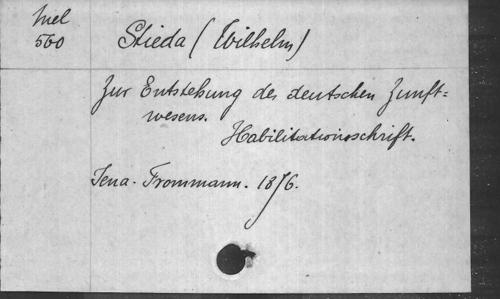 Mel
560
Stieda (Wilhelm)
Zur Entstehung des deutschen Zunft=
wesens.
Habilitationsschrift.
Jena. Frommann. 1876.